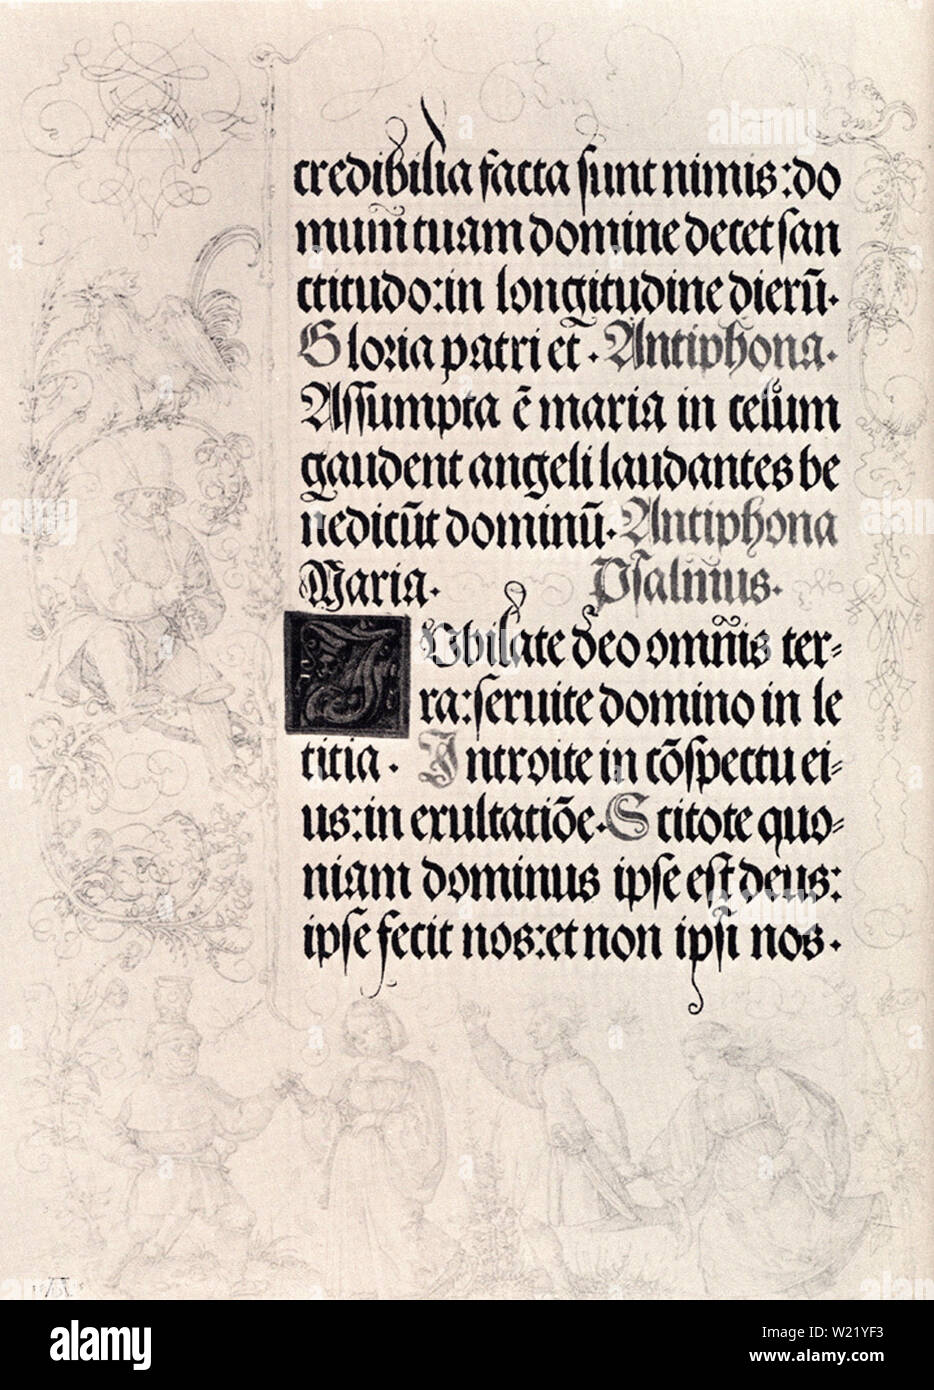 credibilia facta sunt nimis: do
mum̄ tuam domine decet san
ctitudo: in longitudine dierū.
Gloria patri et. Antiphona.
Assumpta ē maria in celum
gaudent angeli laudantes be
nedicūt dominū. Antiphona
Maria. Psalmus.
IUbilate deo omnis ter-
ra: seruite domino in le
titia. Introite in cōspectu ei-
us: in exultatiōe. Scitote quo-
niam dominus ipse est deus:
ipse fecit nos: et non ipsi nos.
AD
alamy
Image ID: W21YF3
www.alamy.com